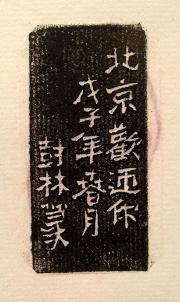 北京歡迎你
戊子年春月
封林篆